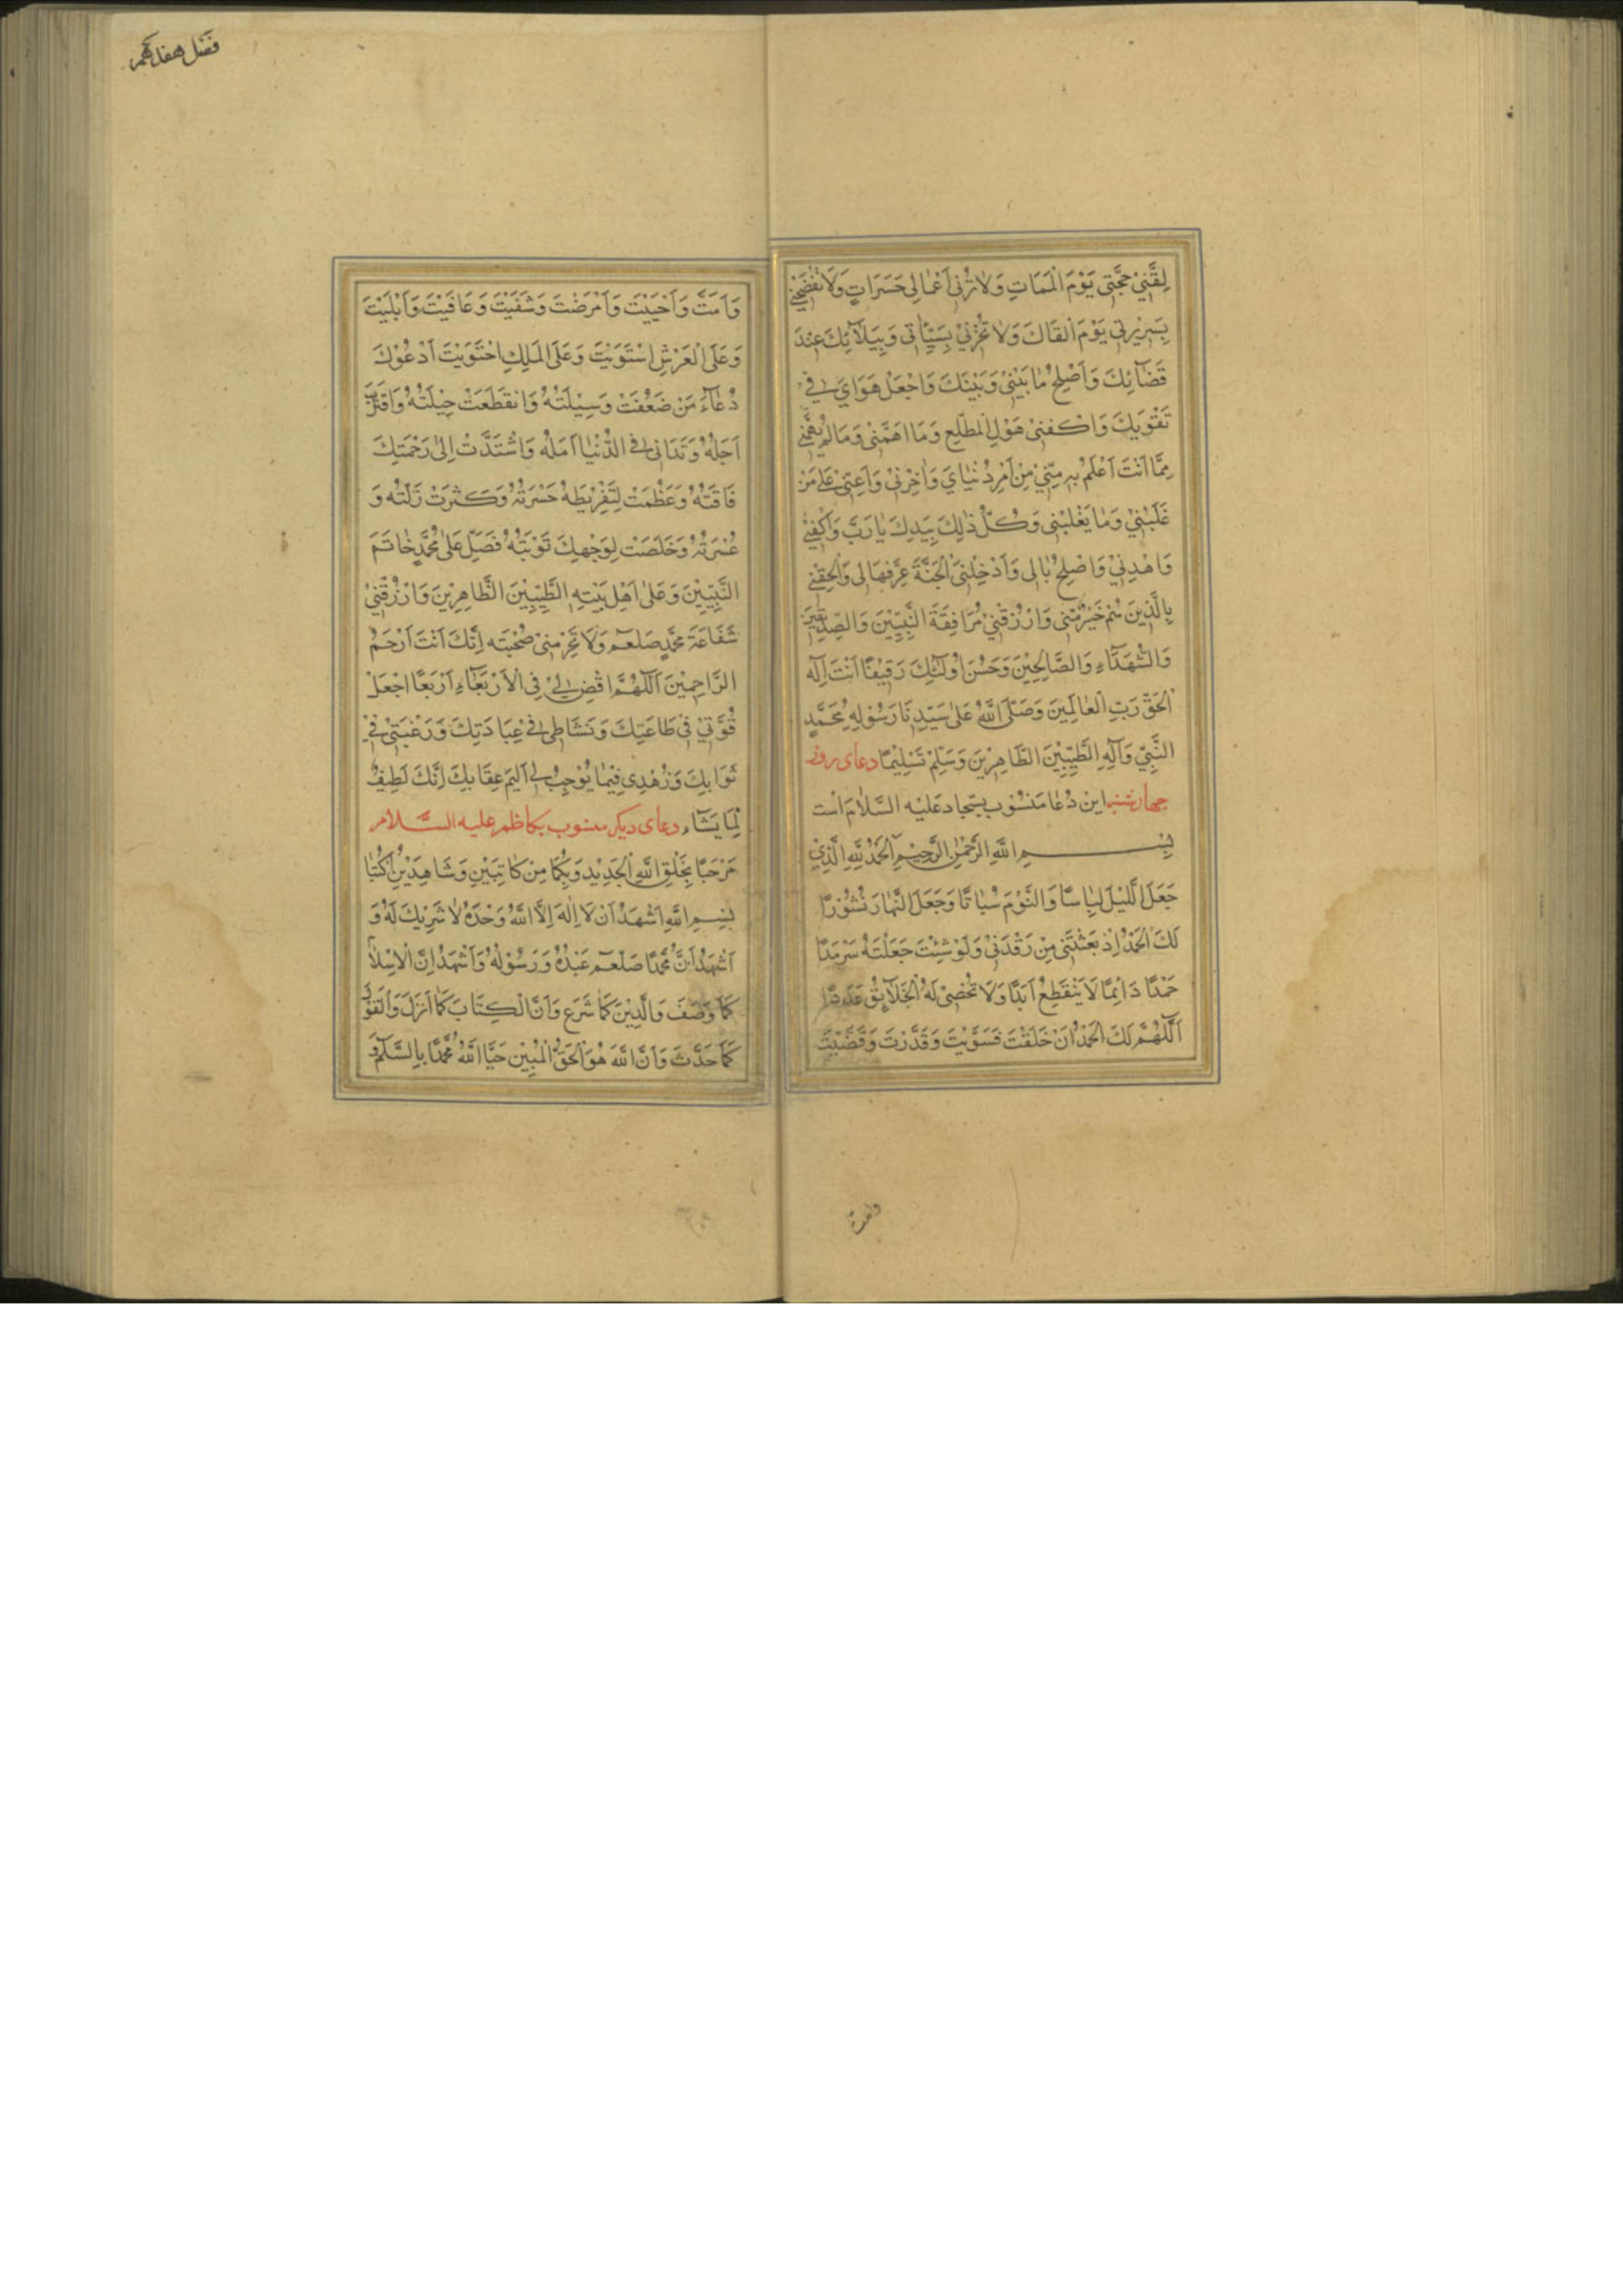 لِقَّنِيْ حُجَّتِى يَوْمَ الْمَمَاتِ وَلَا تُرِنِى اَعْمَالِى حَسَرَاتٍ وَلَا تَفْضَحْنِيْ
بِسَرِيْرَتِى يَوْمَ اَلْقَاكَ وَلَا تُخْزِنِيْ بِسَيِّاٰتِى وَبِبَلَآئِكَ عِنْدَ
قَضَآئِكَ وَاَصْلِحْ مَا بَيْنِىْ وَبَيْنَكَ وَاجْعَلْ هَوَايَ فِى
تَقْوَيكَ وَاكْفِنِىْ هَوْلَ الْمُطَّلَعِ وَمَا اَهَمَّنِىْ وَمَا لَمْ يُهِمَّنِىْ
مِمَّا اَنْتَ اَعْلَمُ بِهِ مِنِّيْ مِنْ اَمْرِ دُنْيَايَ وَاٰخِرَتِىْ وَاَعِنِّىْ عَلٰى مَنْ
غَلَبَنِيْ وَمَا يَغْلِبُنِى وَكُلُّ ذٰلِكَ بِيَدِكَ يَا رَبَّ وَاكْفِنِيْ
وَاهْدِنِيْ وَاصْلِحْ بَالِى وَاَدْخِلْنِىَ الْجَنَّةَ عَرِّفْهَا لِى وَاَلْحِقْنِىْ
بِالَّذِيْنَ هُمْ خَيْرٌ مِّنِّى وَارْزُقْنِيْ مُرَافَقَةَ النَّبِيِّيْنَ وَالصِّدِّيْقِيْنَ
وَالشُّهَدَآءِ وَالصَّالِحِيْنَ وَحَسُنَ اُولٰئِكَ رَفِيْقًا اَنْتَ اِلٰهَ
الْحَقِّ رَبِّ الْعَالَمِيْنَ وَصَلَّى اللّٰهُ عَلٰى سَيِّدِنَا رَسُوْلِهِ مُحَمَّدٍ
النَّبِيِّ وَآلِهِ الطَّيِّبِيْنَ الطَّاهِرِيْنَ وَسَلِّمْ تَسْلِيْمًا دعاى روز
چهارشنبه اين دُعَا مَنْسُوْب بسجاد عَلَيْه السَّلَامْ اَسْت
بِسْمِ اللّٰهِ الرَّحْمٰنِ الرَّحِيْمِ اَلْحَمْدُ لِلّٰهِ الَّذِيْ
جَعَلَ اللَّيْلَ لِبَاسًا وَالنَّوْمَ سُبَاتًا وَجَعَلَ النَّهَارَ نُشُوْرًا
لَكَ الْحَمْدُ اِذْ بَعَثْتَنِى مِنْ رَقْدَتِىْ وَلَوْ شِئْتَ جَعَلْتَهُ سَرْمَدًا
حَمْدًا دَائِمًا لَا يَنْقَطِعُ اَبَدًا وَلَا تُحْصِىْ لَهُ الْخَلَآئِقُ عَدَدًا
اَللّٰهُمَّ لَكَ الْحَمْدُ اَنْ خَلَقْتَ فَسَوَّيْتَ وَقَدَّرْتَ وَقَضَيْتَ
وامت
فصل هفدهم
وَاَمَتَّ وَاَحْيَيْتَ وَاَمْرَضْتَ وَشَفَيْتَ وَعَافَيْتَ وَاَبْلَيْتَ
وَعَلَى الْعَرْشِ اسْتَوَيْتَ وَعَلَى الْمُلْكِ احْتَوَيْتَ اَدْعُوْكَ
دُعَاءَ مَنْ ضَعُفَتْ وَسِيْلَتُهُ وَانْقَطَعَتْ حِيْلَتُهُ وَاقْتَرَبَ
اَجَلُهُ وَتَدَانٰى فِى الدُّنْيَا اَمَلُهُ وَاشْتَدَّتْ اِلٰى رَحْمَتِكَ
فَاقَتُهُ وَعَظُمَتْ لِتَفْرِيْطِهِ حَسْرَتُهُ وَكَثُرَتْ زَلَّتُهُ وَ
عُسْرَتُهُ وَخَلَصَتْ لِوَجْهِكَ تَوْبَتُهُ فَصَلِّ عَلٰى مُحَمَّدٍ خَاتَمَ
النَّبِيِّيْنَ وَعَلٰى اَهْلِ بَيْتِهِ الطَّيِّبِيْنَ الطَّاهِرِيْنَ وَارْزُقْنِىْ
شَفَاعَةَ مُحَمَّدٍ صَلعم وَلَا تَحْرِمْنِىْ صُحْبَتَه اِنَّكَ اَنْتَ اَرْحَمُ
الرَّاحِمِيْنَ اَللّٰهُمَّ اقْضِ لِىْ فِى الْاَرْبَعَاءِ اَرْبَعًا اجْعَلْ
قُوَّتِيْ فِى طَاعَتِكَ وَنَشَاطِى فِى عِبَادَتِكَ وَرَغْبَتِىْ فِيْ
ثَوَابِكَ وَزُهْدِى فِيْمَا يُوْجِبُ لِى اَلِيْمَ عِقَابِكَ اِنَّكَ لَطِيْفٌ
لِمَا يَشَآء دعاى ديكر منسوب بكاظم عليه السَّلام
مَرْحَبًا بِخَلْقِ اللّٰهِ الْجَدِيْدِ وَبِكُمَا مِنْ كَاتِبَيْنِ وَشَاهِدَيْنِ اُكْتُبَا
بِسْمِ اللّٰهِ اَشْهَدُ اَنْ لَا اِلٰهَ اِلَّا اللّٰهُ وَحْدَهُ لَا شَرِيْكَ لَهُ وَ
اَشْهَدُ اَنَّ مُحَمَّدًا صَلعم عَبْدُهُ وَرَسُوْلُهُ وَاَشْهَدُ اِنَّ الْاِسْلَامَ
كَمَا وَصَفَ وَالدِّيْنَ كَمَا شَرَعَ وَاَنَّ الْكِتَابَ كَمَا اَنْزَلَ وَالْقَوْلَ
كَمَا حَدَّثَ وَاَنَّ اللّٰهَ هُوَ الْحَقُّ الْمُبِيْن حَيَّا اللّٰهُ مُحَمَّدًا بِالسَّلَامِ وَ